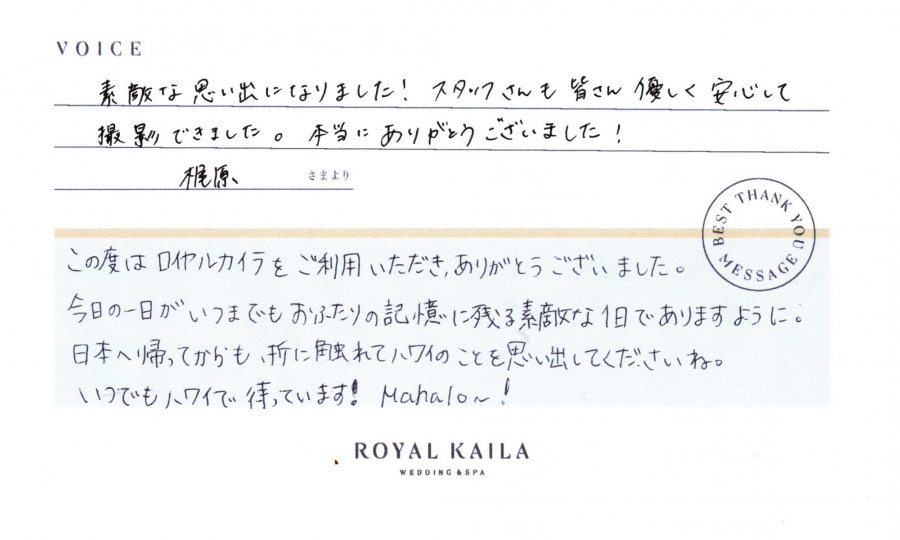 VOICE
素敵な思い出になりました! スタッフさんも皆さん優しく安心して
撮影できました。本当にありがとうございました!
梶原、 さまより
BEST THANK YOU MESSAGE
この度はロイヤルカイラをご利用いただき、ありがとうございました。
今日の一日がいつまでもおふたりの記憶に残る素敵な1日でありますように。
日本へ帰ってからも、折に触れてハワイのことを思い出してくださいね。
いつでもハワイで待っています! Mahalo~!
ROYAL KAILA
WEDDING & SPA